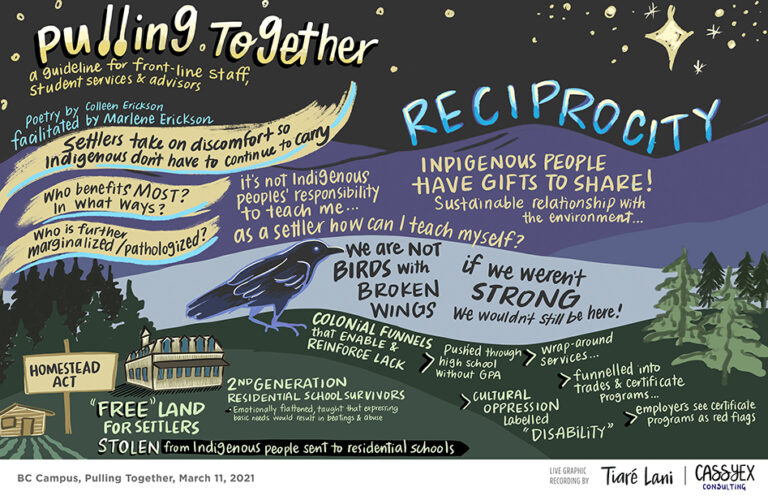 Pulling Together
a guideline for front-line staff,
student services & advisors
Poetry by Colleen Erickson
facilitated by Marlene Erickson
RECIPROCITY
Settlers take on discomfort so
Indigenous don't have to continue to carry
Who benefits MOST?
In what ways?
Who is further
marginalized/pathologized?
it's not Indigenous
peoples' responsibility
to teach me...
as a settler how can I teach myself?
INDIGENOUS PEOPLE
HAVE GIFTS TO SHARE!
Sustainable relationship with
the environment...
We are NOT
BIRDS with
BROKEN
WINGS
if we weren't
STRONG
We wouldn't still be here!
HOMESTEAD
ACT
"FREE" LAND
FOR SETTLERS
STOLEN from Indigenous people sent to residential schools
2ND GENERATION
RESIDENTIAL SCHOOL SURVIVORS
- Emotionally flattened, taught that expressing
basic needs would result in beatings & abuse
COLONIAL FUNNELS
that ENABLE &
REINFORCE LACK
> Pushed through
high school
without GPA
> wrap-around
services...
> funnelled into
trades & certificate
programs...
> CULTURAL
OPPRESSION
Labelled
"DISABILITY"
> employers see certificate
programs as red flags
BC Campus, Pulling Together, March 11, 2021
LIVE GRAPHIC
RECORDING BY
Tiaré Lani
CASSYEX
CONSULTING